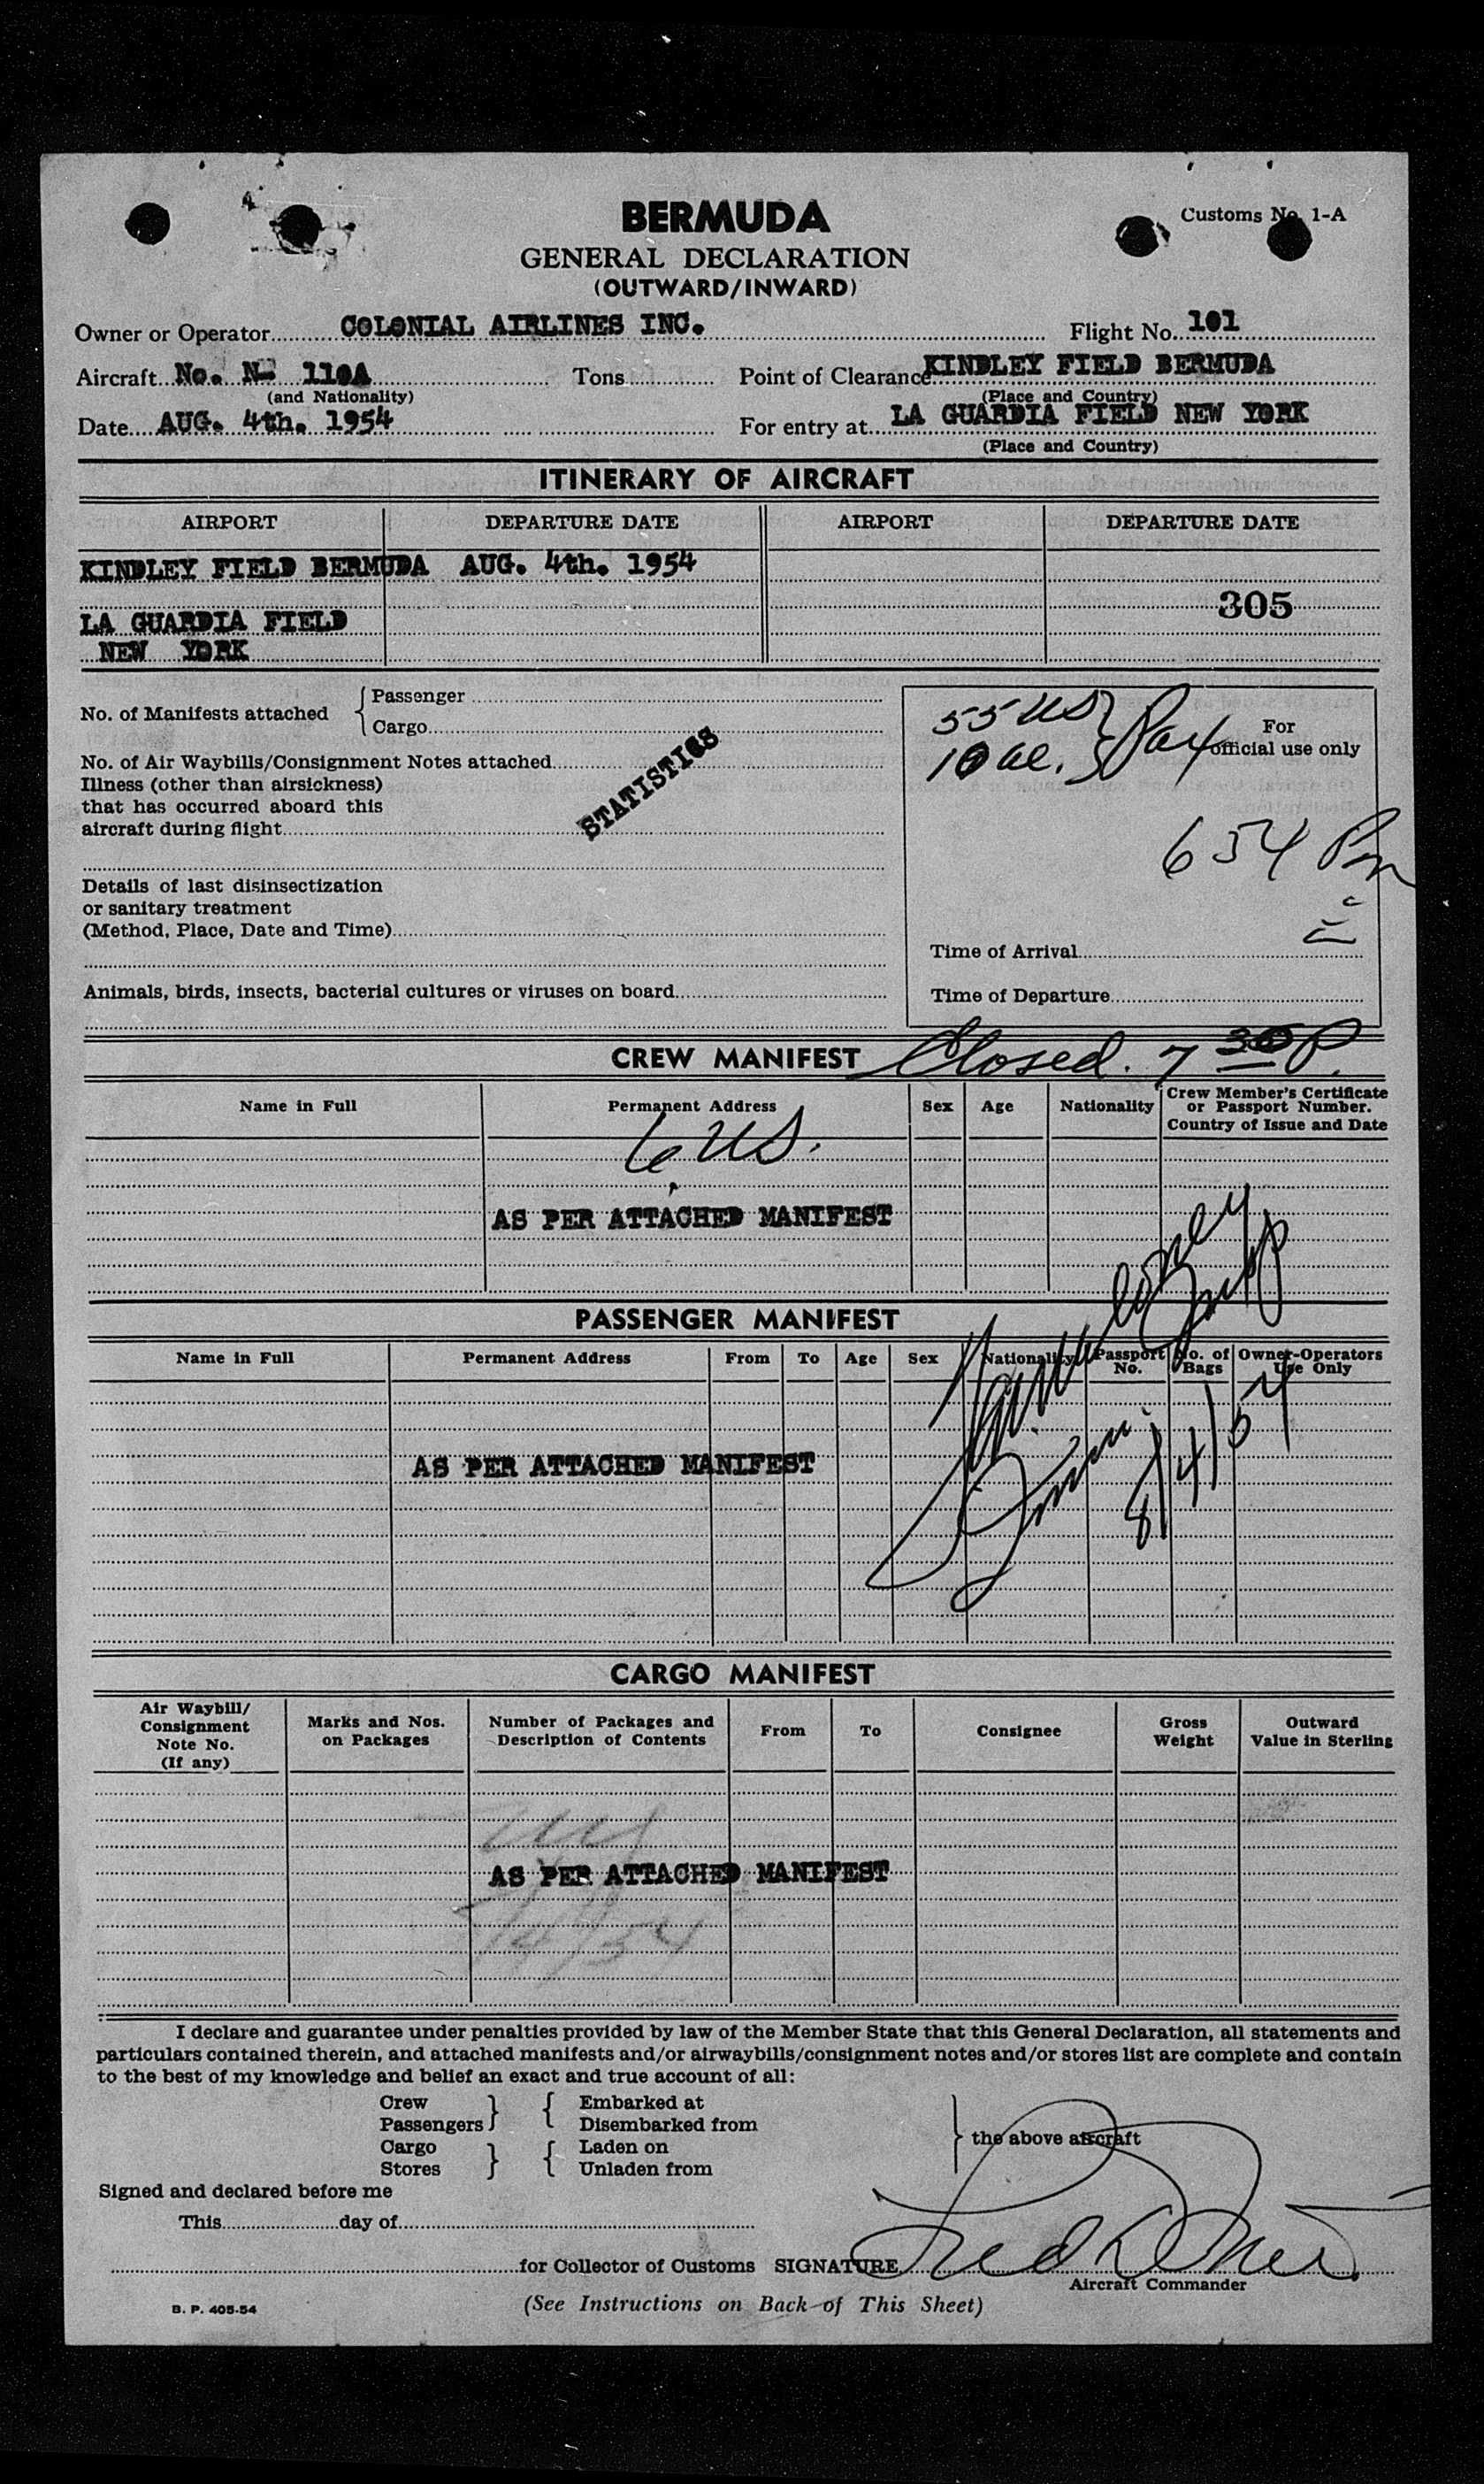 BERMUDA
Customs No. 1-A
GENERAL DECLARATION
(OUTWARD/INWARD)
Owner or Operator COLONIAL AIRLINES INC. Flight No. 101
Aircraft No. N- 110A Tons Point of Clearance KINDLEY FIELD BERMUDA
(and Nationality) (Place and Country)
Date AUG. 4th. 1954 For entry at LA GUARDIA FIELD NEW YORK
(Place and Country)
ITINERARY OF AIRCRAFT
AIRPORT DEPARTURE DATE AIRPORT DEPARTURE DATE
KINDLEY FIELD BERMUDA AUG. 4th. 1954
305
LA GUARDIA FIELD
NEW YORK
No. of Manifests attached { Passenger
Cargo
55 US } Pax
10 al.
For
official use only
No. of Air Waybills/Consignment Notes attached
STATISTICS
Illness (other than airsickness)
that has occurred aboard this
aircraft during flight
654 Pm
Details of last disinsectization
or sanitary treatment
(Method, Place, Date and Time)
Time of Arrival
Animals, birds, insects, bacterial cultures or viruses on board
Time of Departure
CREW MANIFEST Closed. 7 30 P.
Name in Full Permanent Address Sex Age Nationality Crew Member's Certificate
or Passport Number.
Country of Issue and Date
6 US.
AS PER ATTACHED MANIFEST
PASSENGER MANIFEST
Name in Full Permanent Address From To Age Sex Nationality Passport No. No. of Bags Owner-Operators Use Only
8/4/54
AS PER ATTACHED MANIFEST
CARGO MANIFEST
Air Waybill/
Consignment
Note No.
(If any) Marks and Nos.
on Packages Number of Packages and
Description of Contents From To Consignee Gross
Weight Outward
Value in Sterling
AS PER ATTACHED MANIFEST
/4/54
I declare and guarantee under penalties provided by law of the Member State that this General Declaration, all statements and
particulars contained therein, and attached manifests and/or airwaybills/consignment notes and/or stores list are complete and contain
to the best of my knowledge and belief an exact and true account of all:
Crew } { Embarked at
Passengers Disembarked from
} the above aircraft
Cargo } { Laden on
Stores Unladen from
Signed and declared before me
This day of
for Collector of Customs SIGNATURE
Aircraft Commander
B. P. 405-54
(See Instructions on Back of This Sheet)